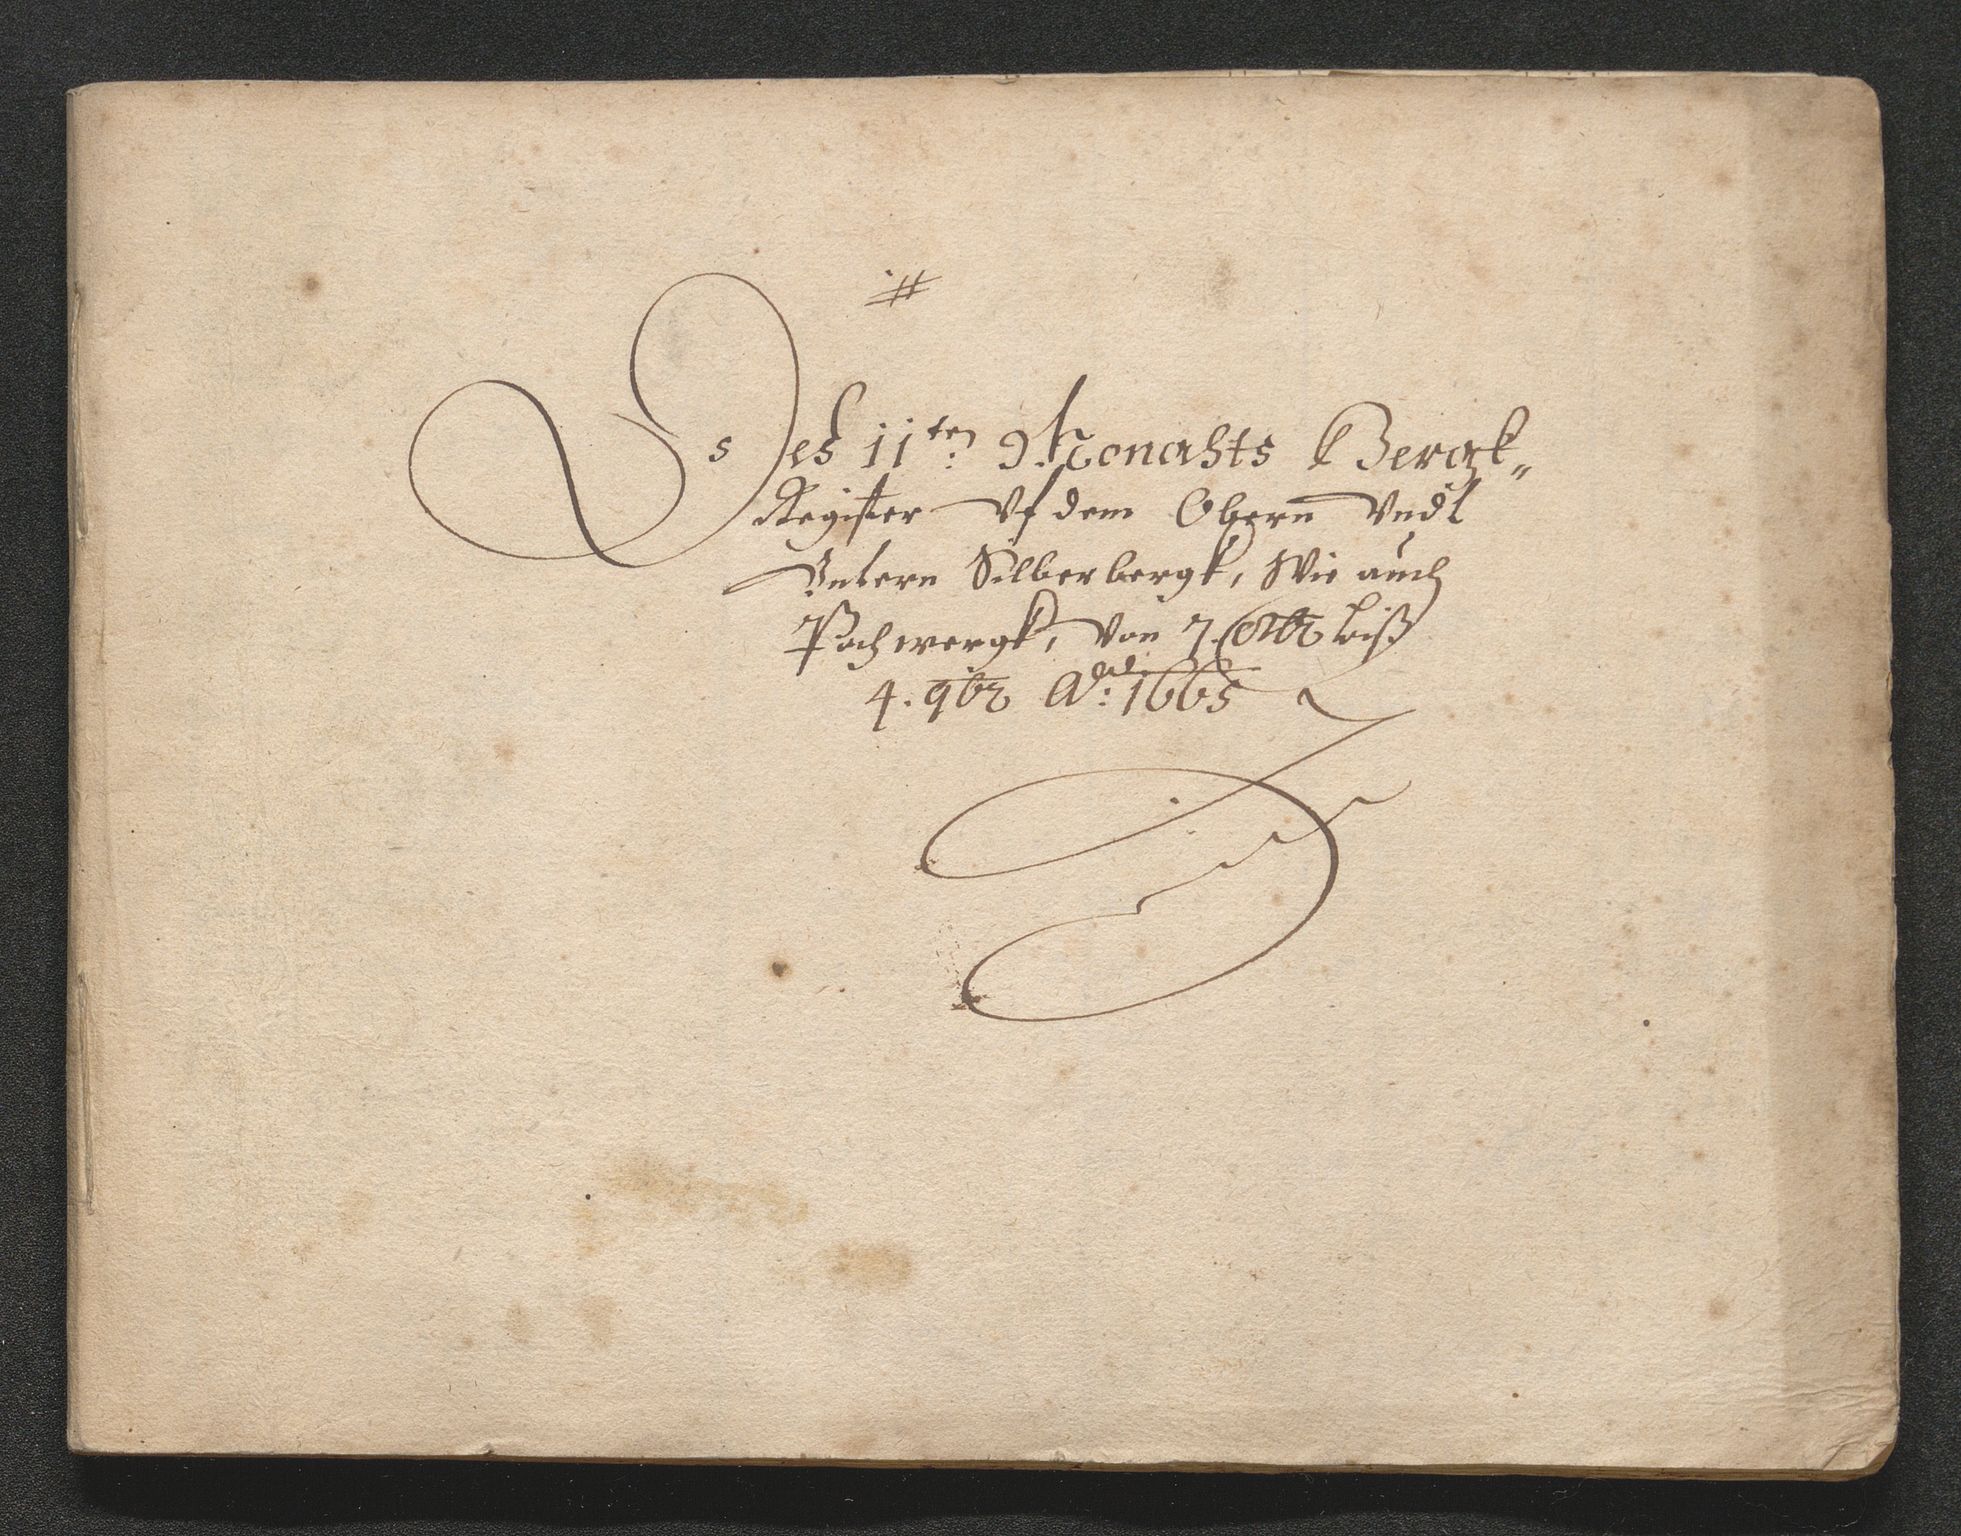 #
Des 11ten: Monahts Bergk„
Register Vf dem Obern Vndt
Vntern Silberbergk, Wie auch
Pochwergk, Von 7. Octbr biß
4. 9br Ao: 1665